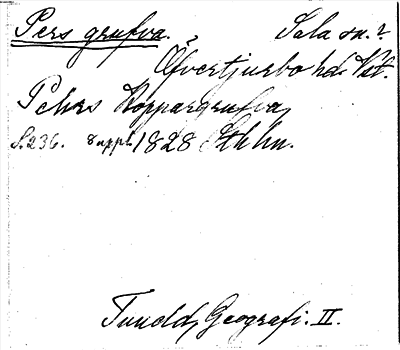 Pers grufva. Sala sn.?
? Öfvertjurbo hd. Vst.
Pehrs Koppargrufva,
S. 236. 8 uppl. 1828 Sthlm.
Tuneld, Geografi. II.